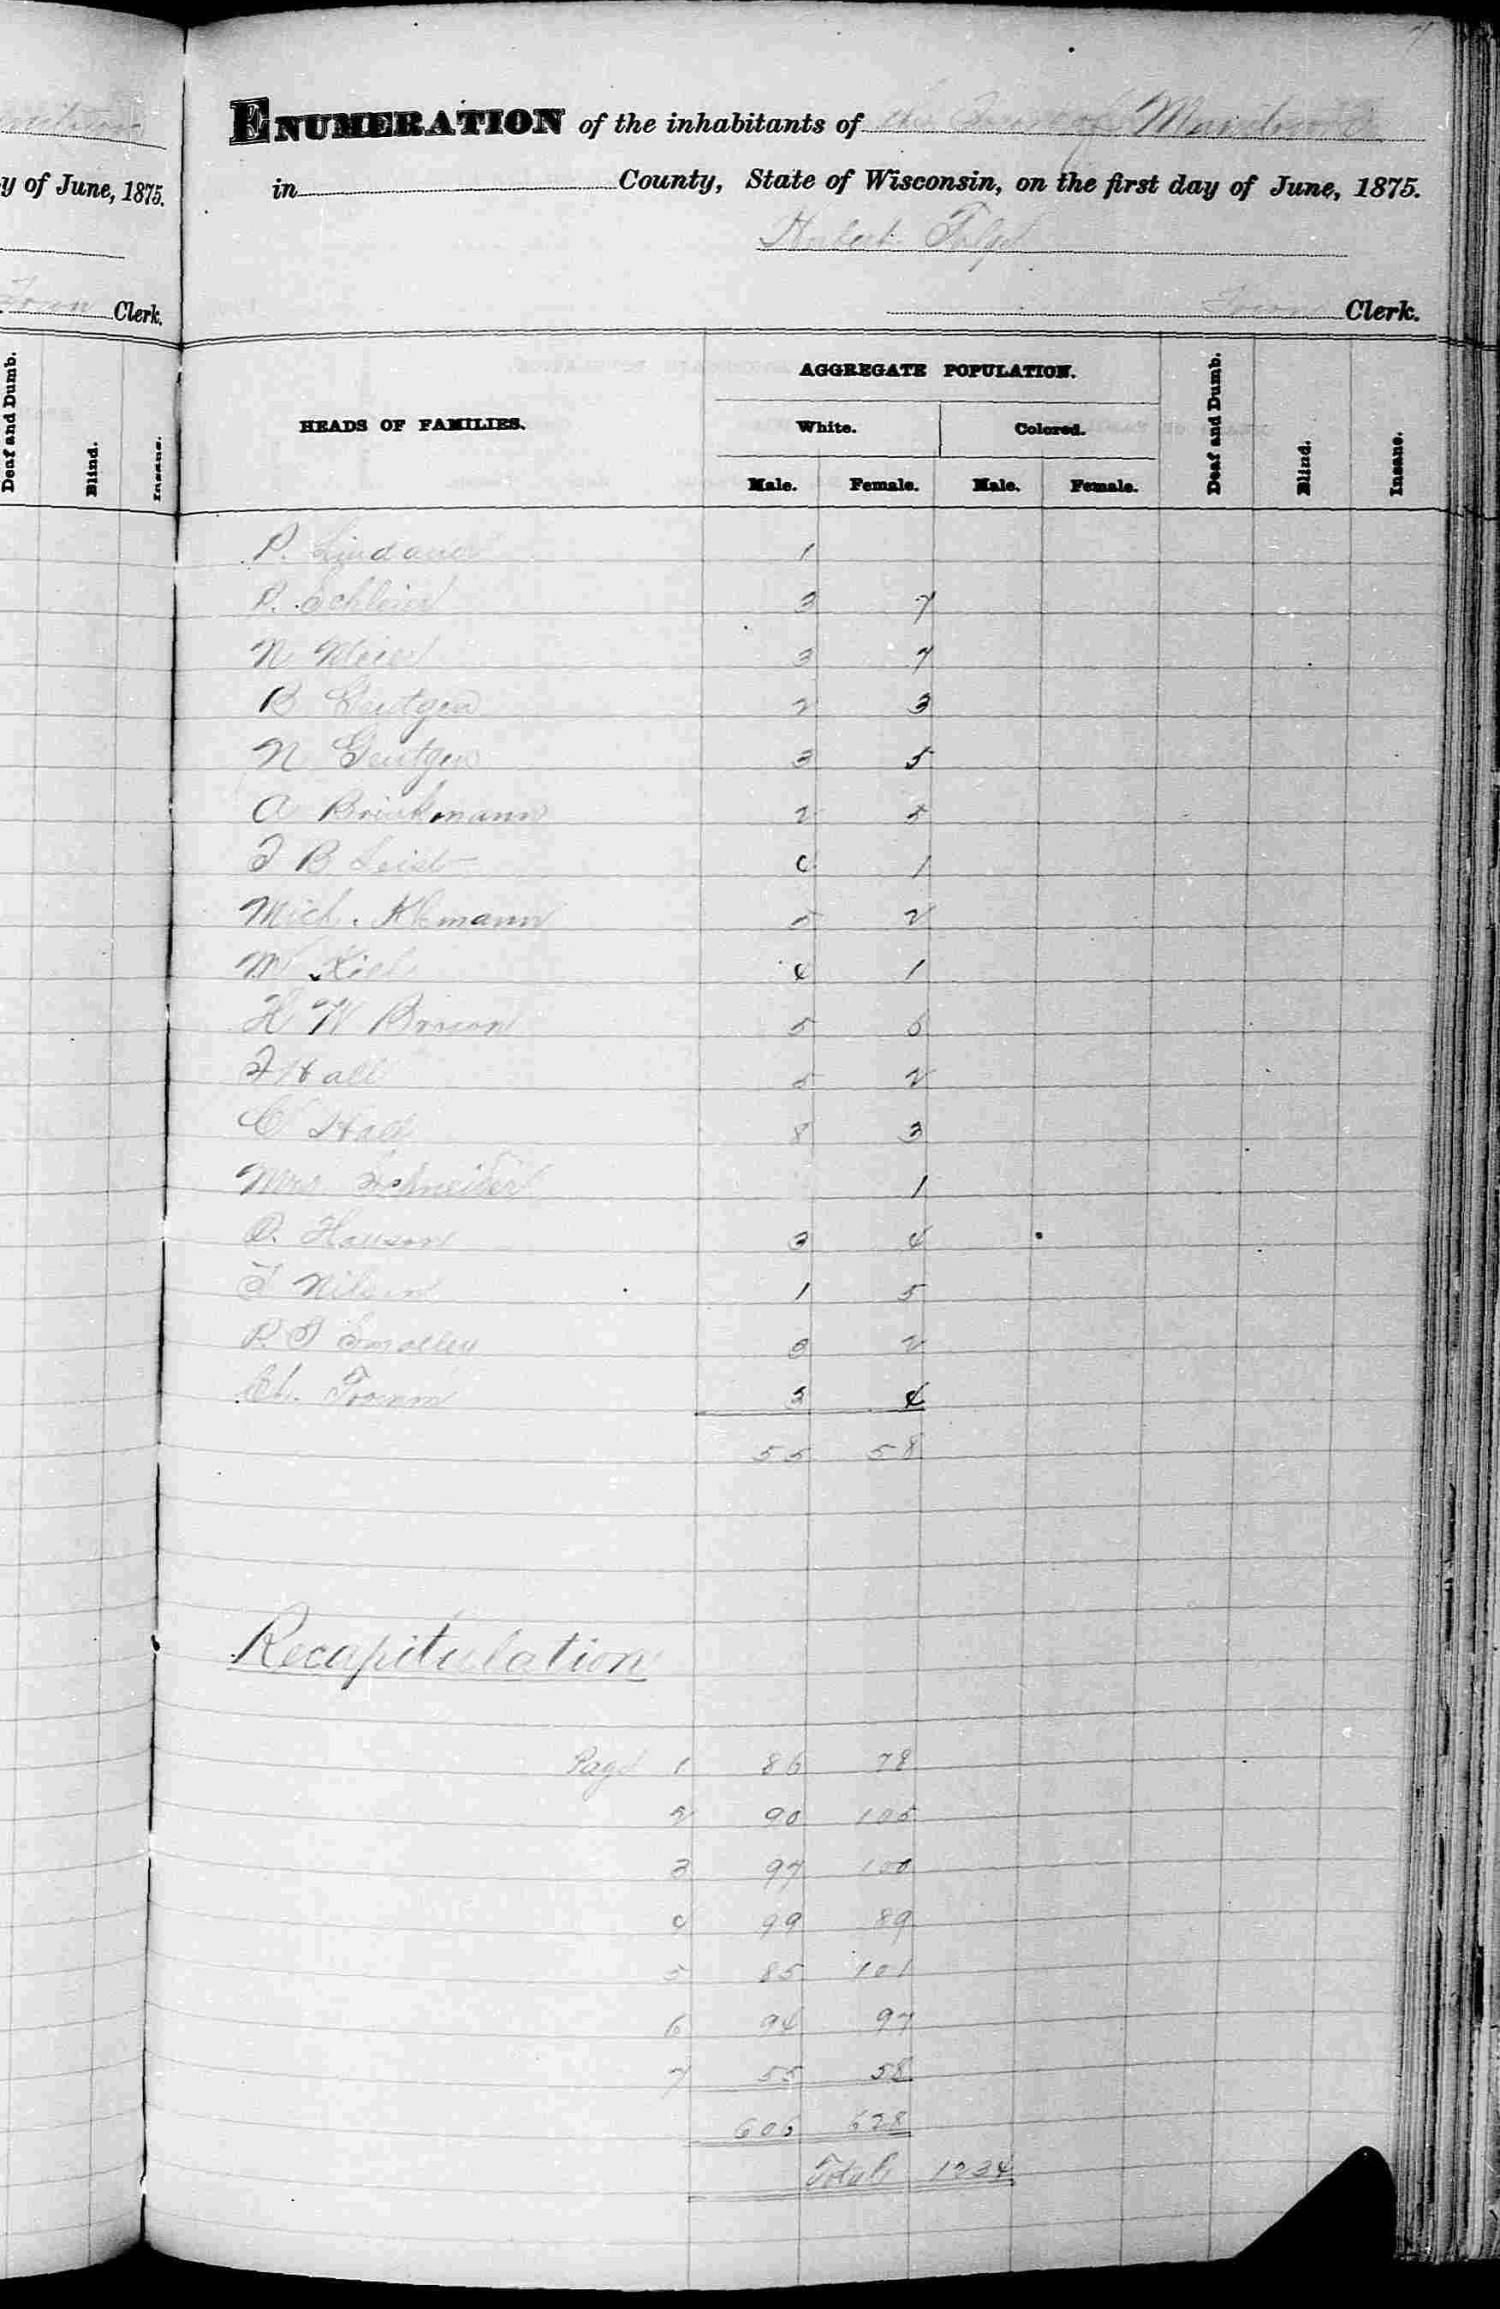 7
y of June, 1875.
Town Clerk.
Deaf and Dumb.
Blind.
Insane.
ENUMERATION of the inhabitants of the Town of
in County, State of Wisconsin, on the first day of June, 1875.
Town Clerk.
HEADS OF FAMILIES.
AGGREGATE POPULATION.
White. Colored.
Male. Female. Male. Female.
Deaf and Dumb.
Blind.
Insane.
P. Lindauer 1
P. 3 7
N 3 7
B Gentgen 2 3
N Gentgen 3 5
A Brinkmann 2 5
J B Leist 4 1
Mich. 5 2
Kiel 4 1
H W Brown 5 6
J Hall 5 2
C Hall 8 3
Mrs. Schneider 1
O. Hanson 3 4
1 5
P. J Smalley 3 2
Ch. Fromm 3 4
55 58
Recapitulation
Page 1 86 78
2 90 105
3 97 100
4 99 89
5 85 101
6 94 97
7 55 58
606 628
Total 1234